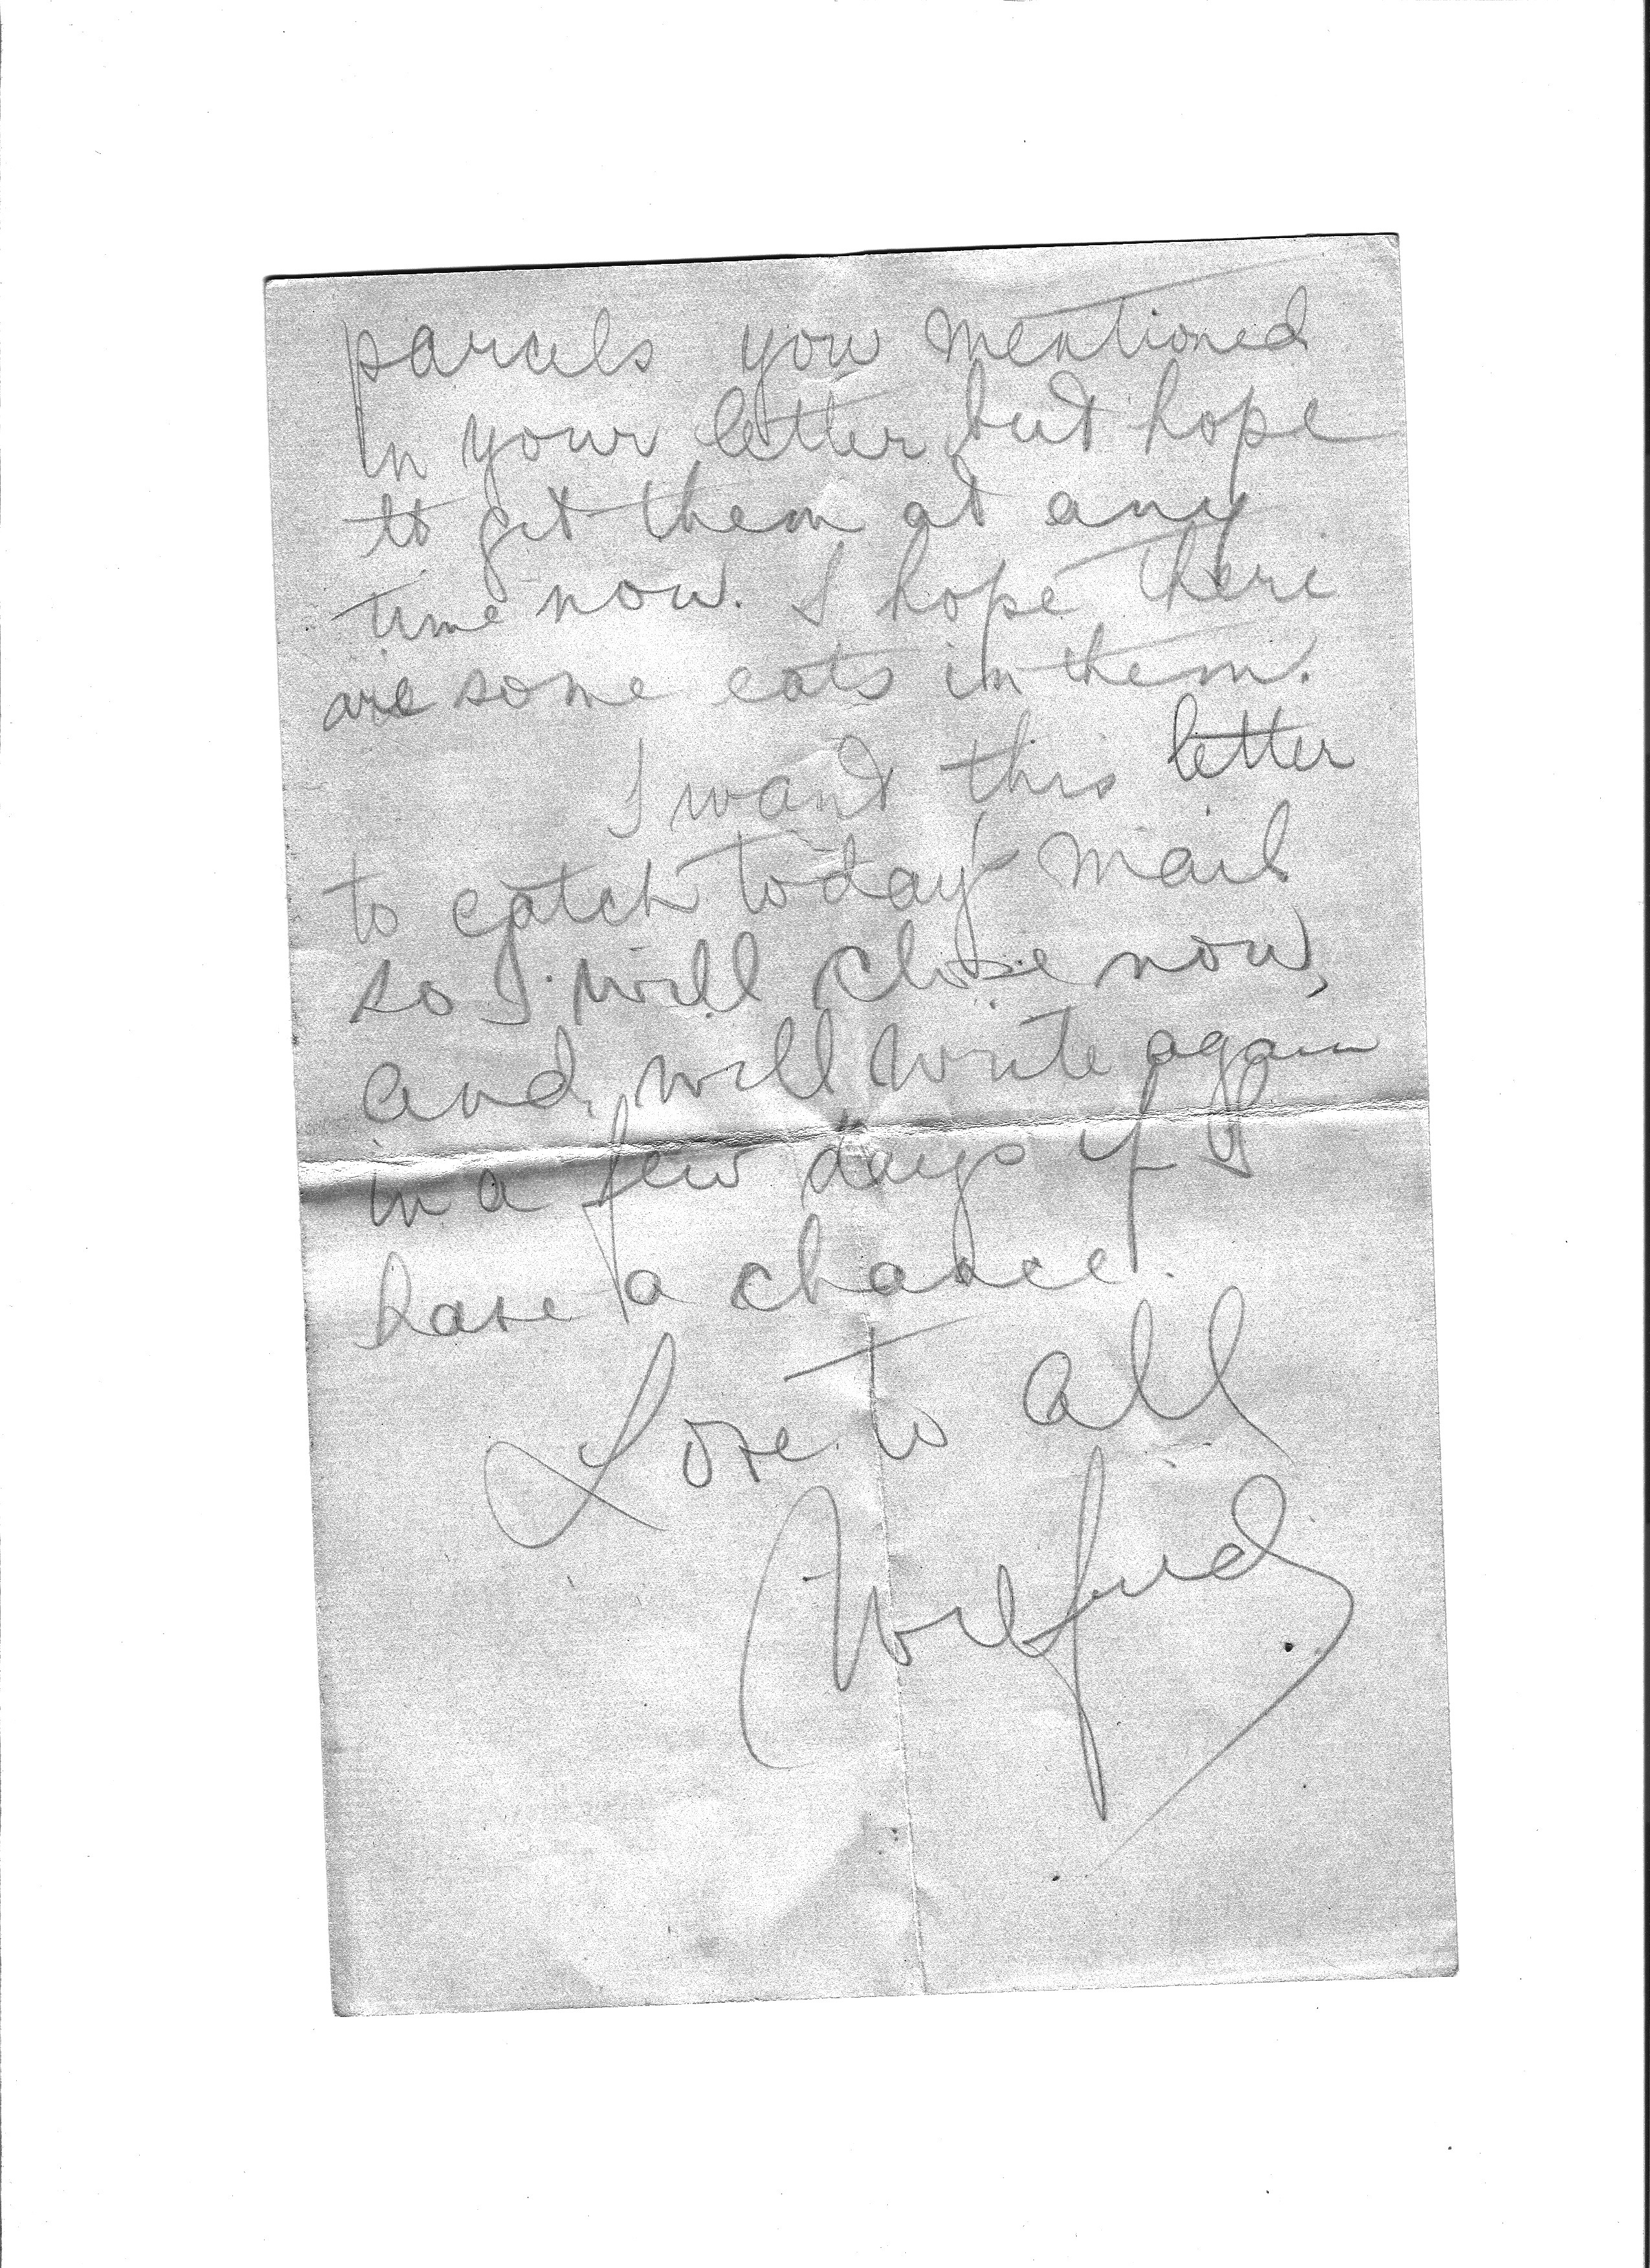 parcels you mentioned
in your letter but hope
to get them at any
time now. I hope there
are some eats in them.
I want this letter
to catch today mail
so I will close now,
and will write again
in a few days if I
have a chance.
Love to all
Wilfrid